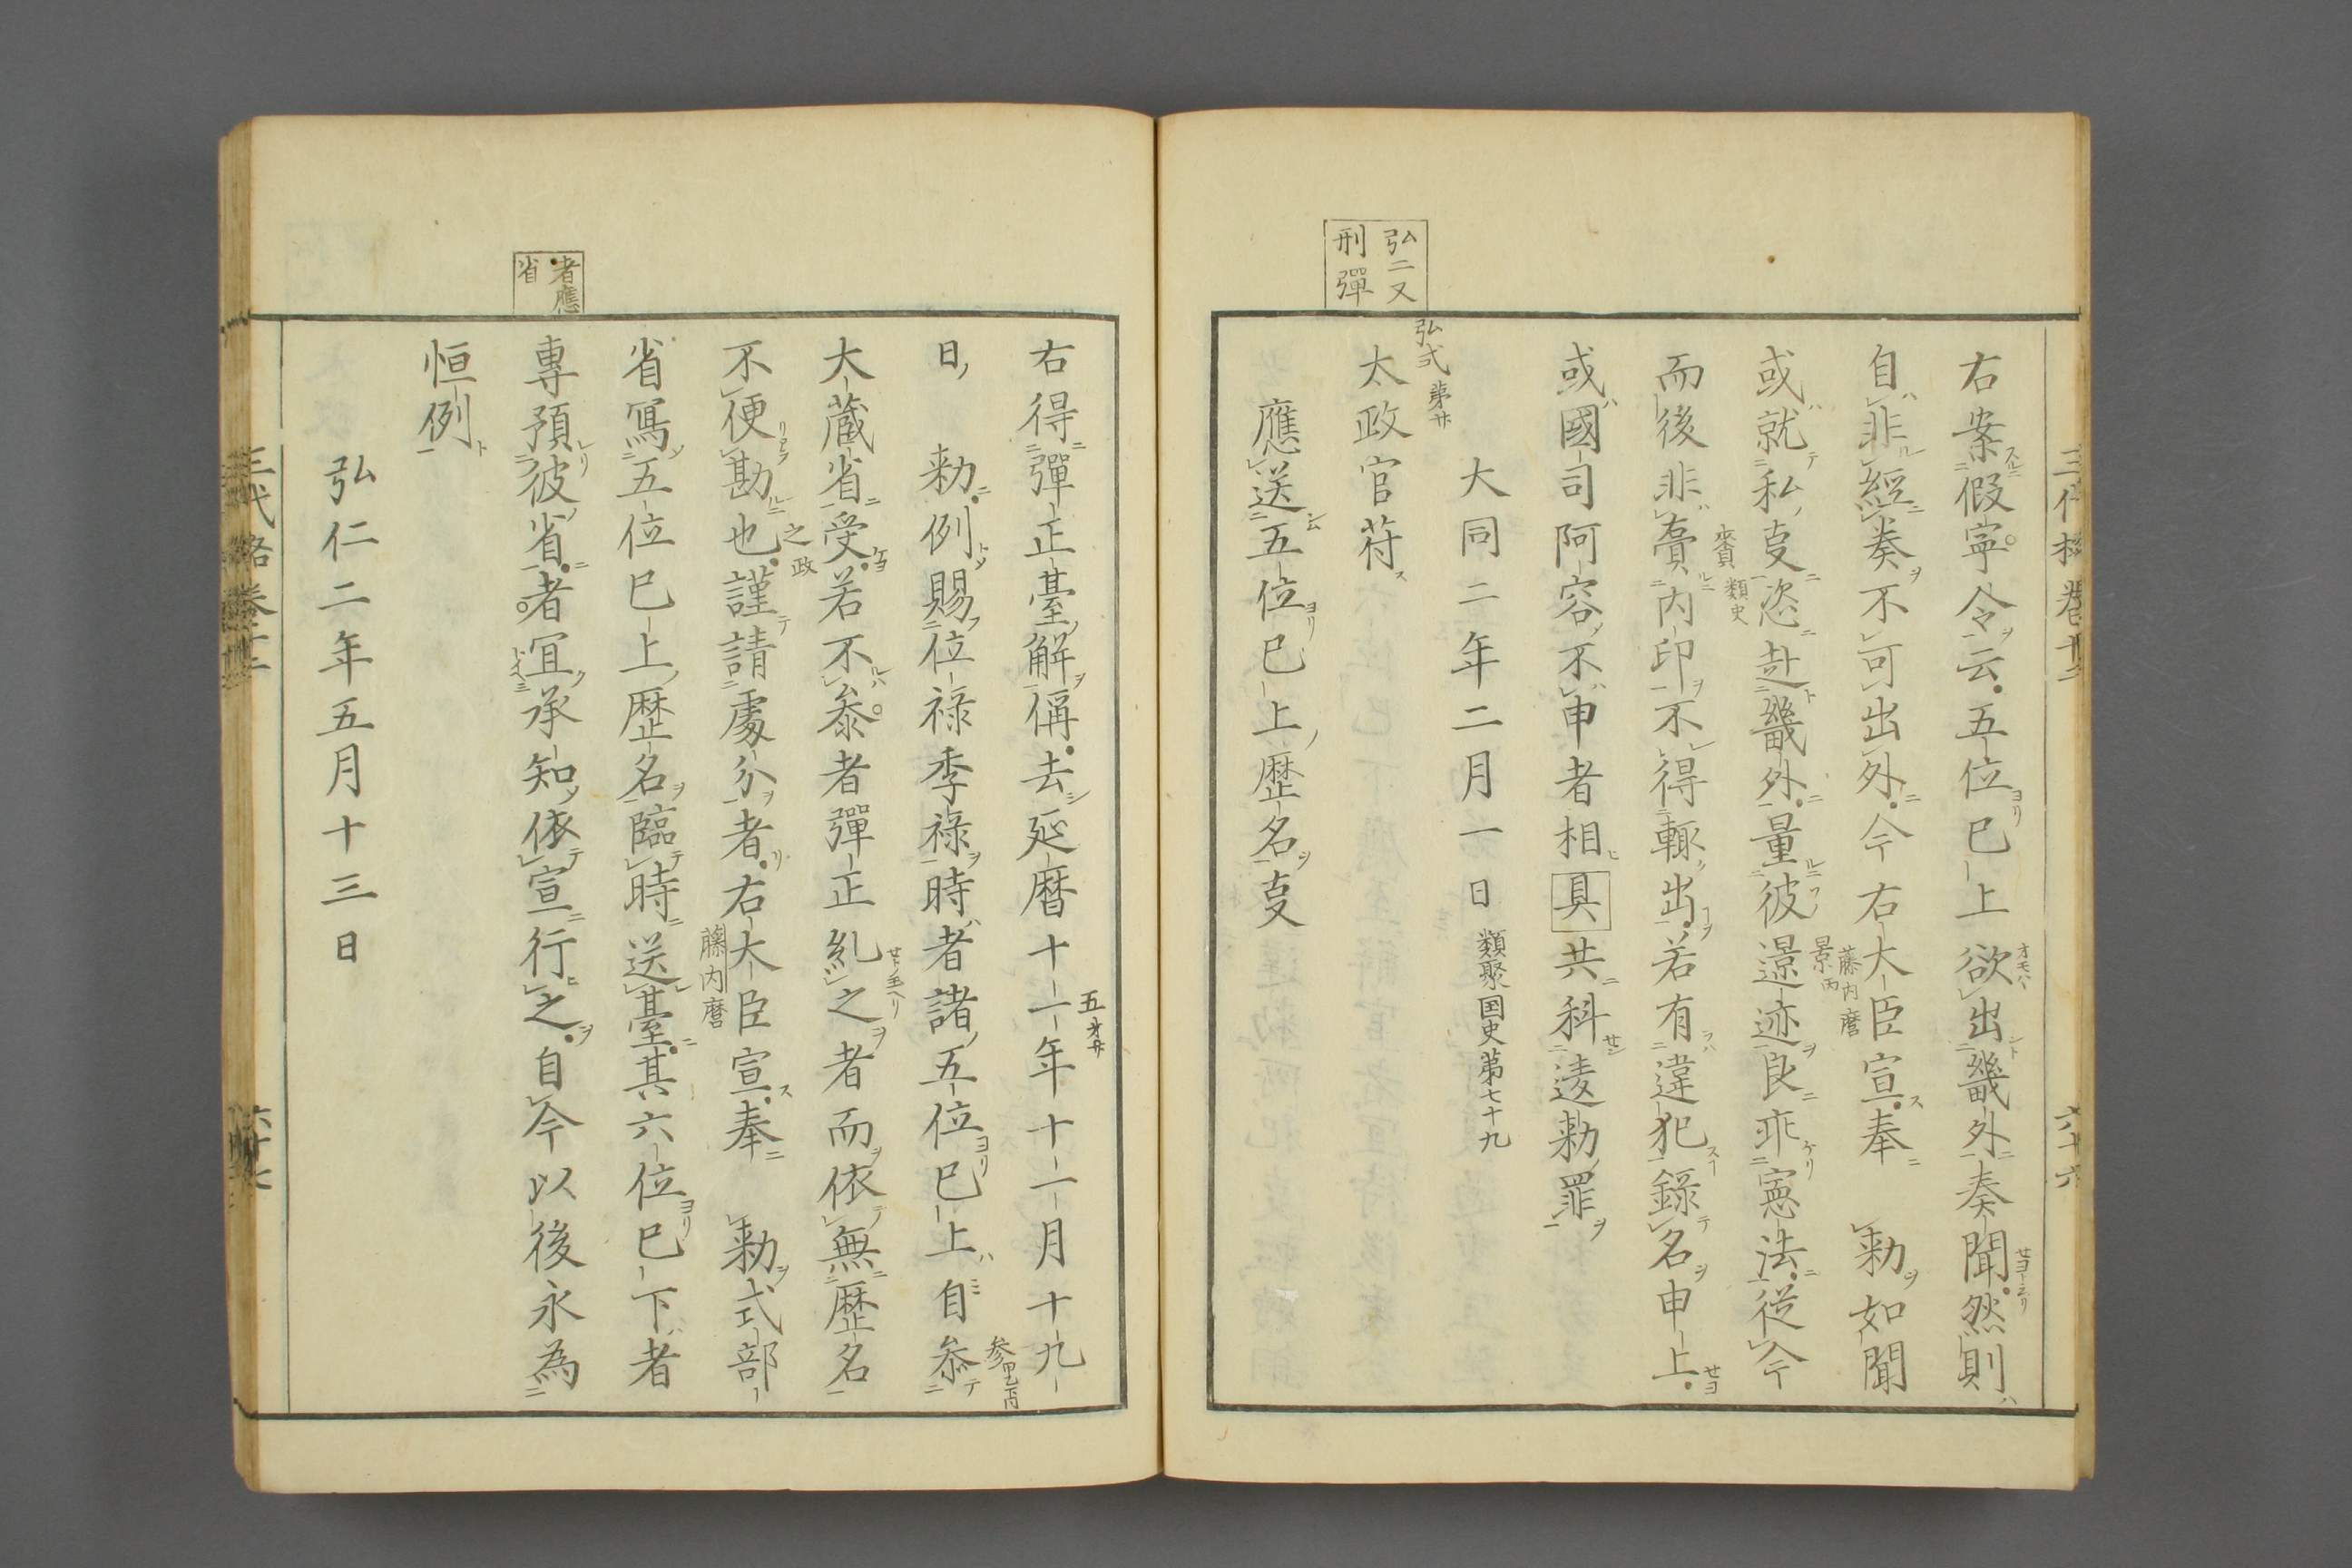 右案假寧令云五位已上欲出畿外奏聞然則
自非經奏不可出外今右大臣宣奉　勅如聞
藤内麿
或就私事恣赴畿外量彼景迹良乖憲法從今
景丙
而後非賷内印不得輙出若有違犯錄名申上
類史
或國司阿容不申者相具共科違勅罪
大同二年二月一日
類聚国史第七十九
弘二又
刑彈
弘式 第廿
太政官符
應送五位已上歷名事
右得彈正臺解偁去延暦十一年十一月十九
日　勅例賜位祿季祿時者諸五位已上自叅
参甲乙丙
大藏省受若不叅者彈正糺之者而依無歷名
不便勘也謹請處分者右大臣宣奉　勅式部
之政
藤内麿
省寫五位已上歷名臨時送臺其六位已下者
者應
省
專預彼省者宜承知依宣行之自今以後永為
恒例
弘仁二年五月十三日